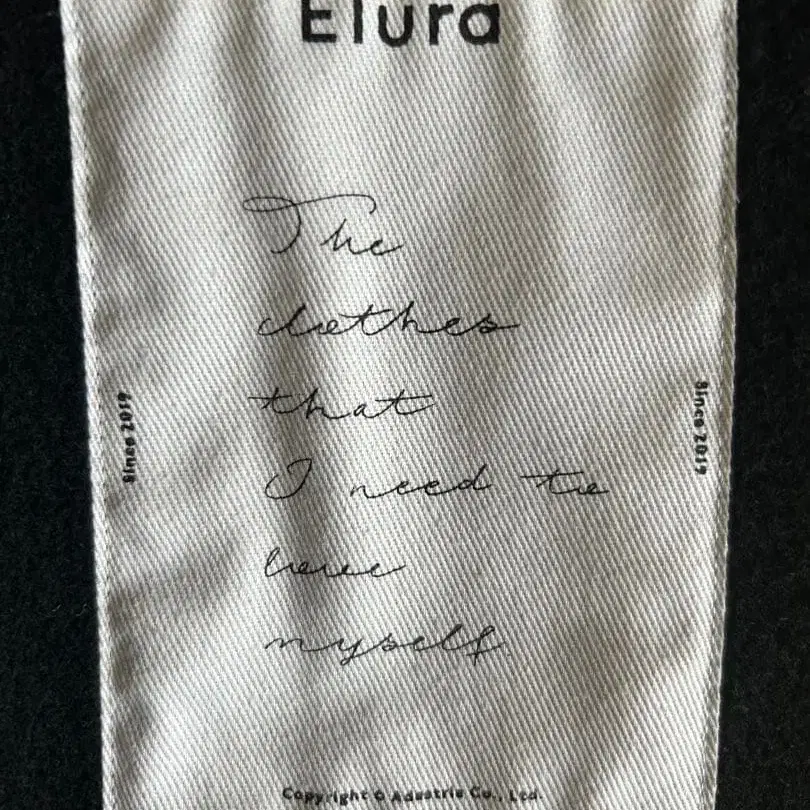 Elura
The
clothes
that
I need to
love
myself.
Since 2019
Since 2019
Copyright © Adastria Co., Ltd.